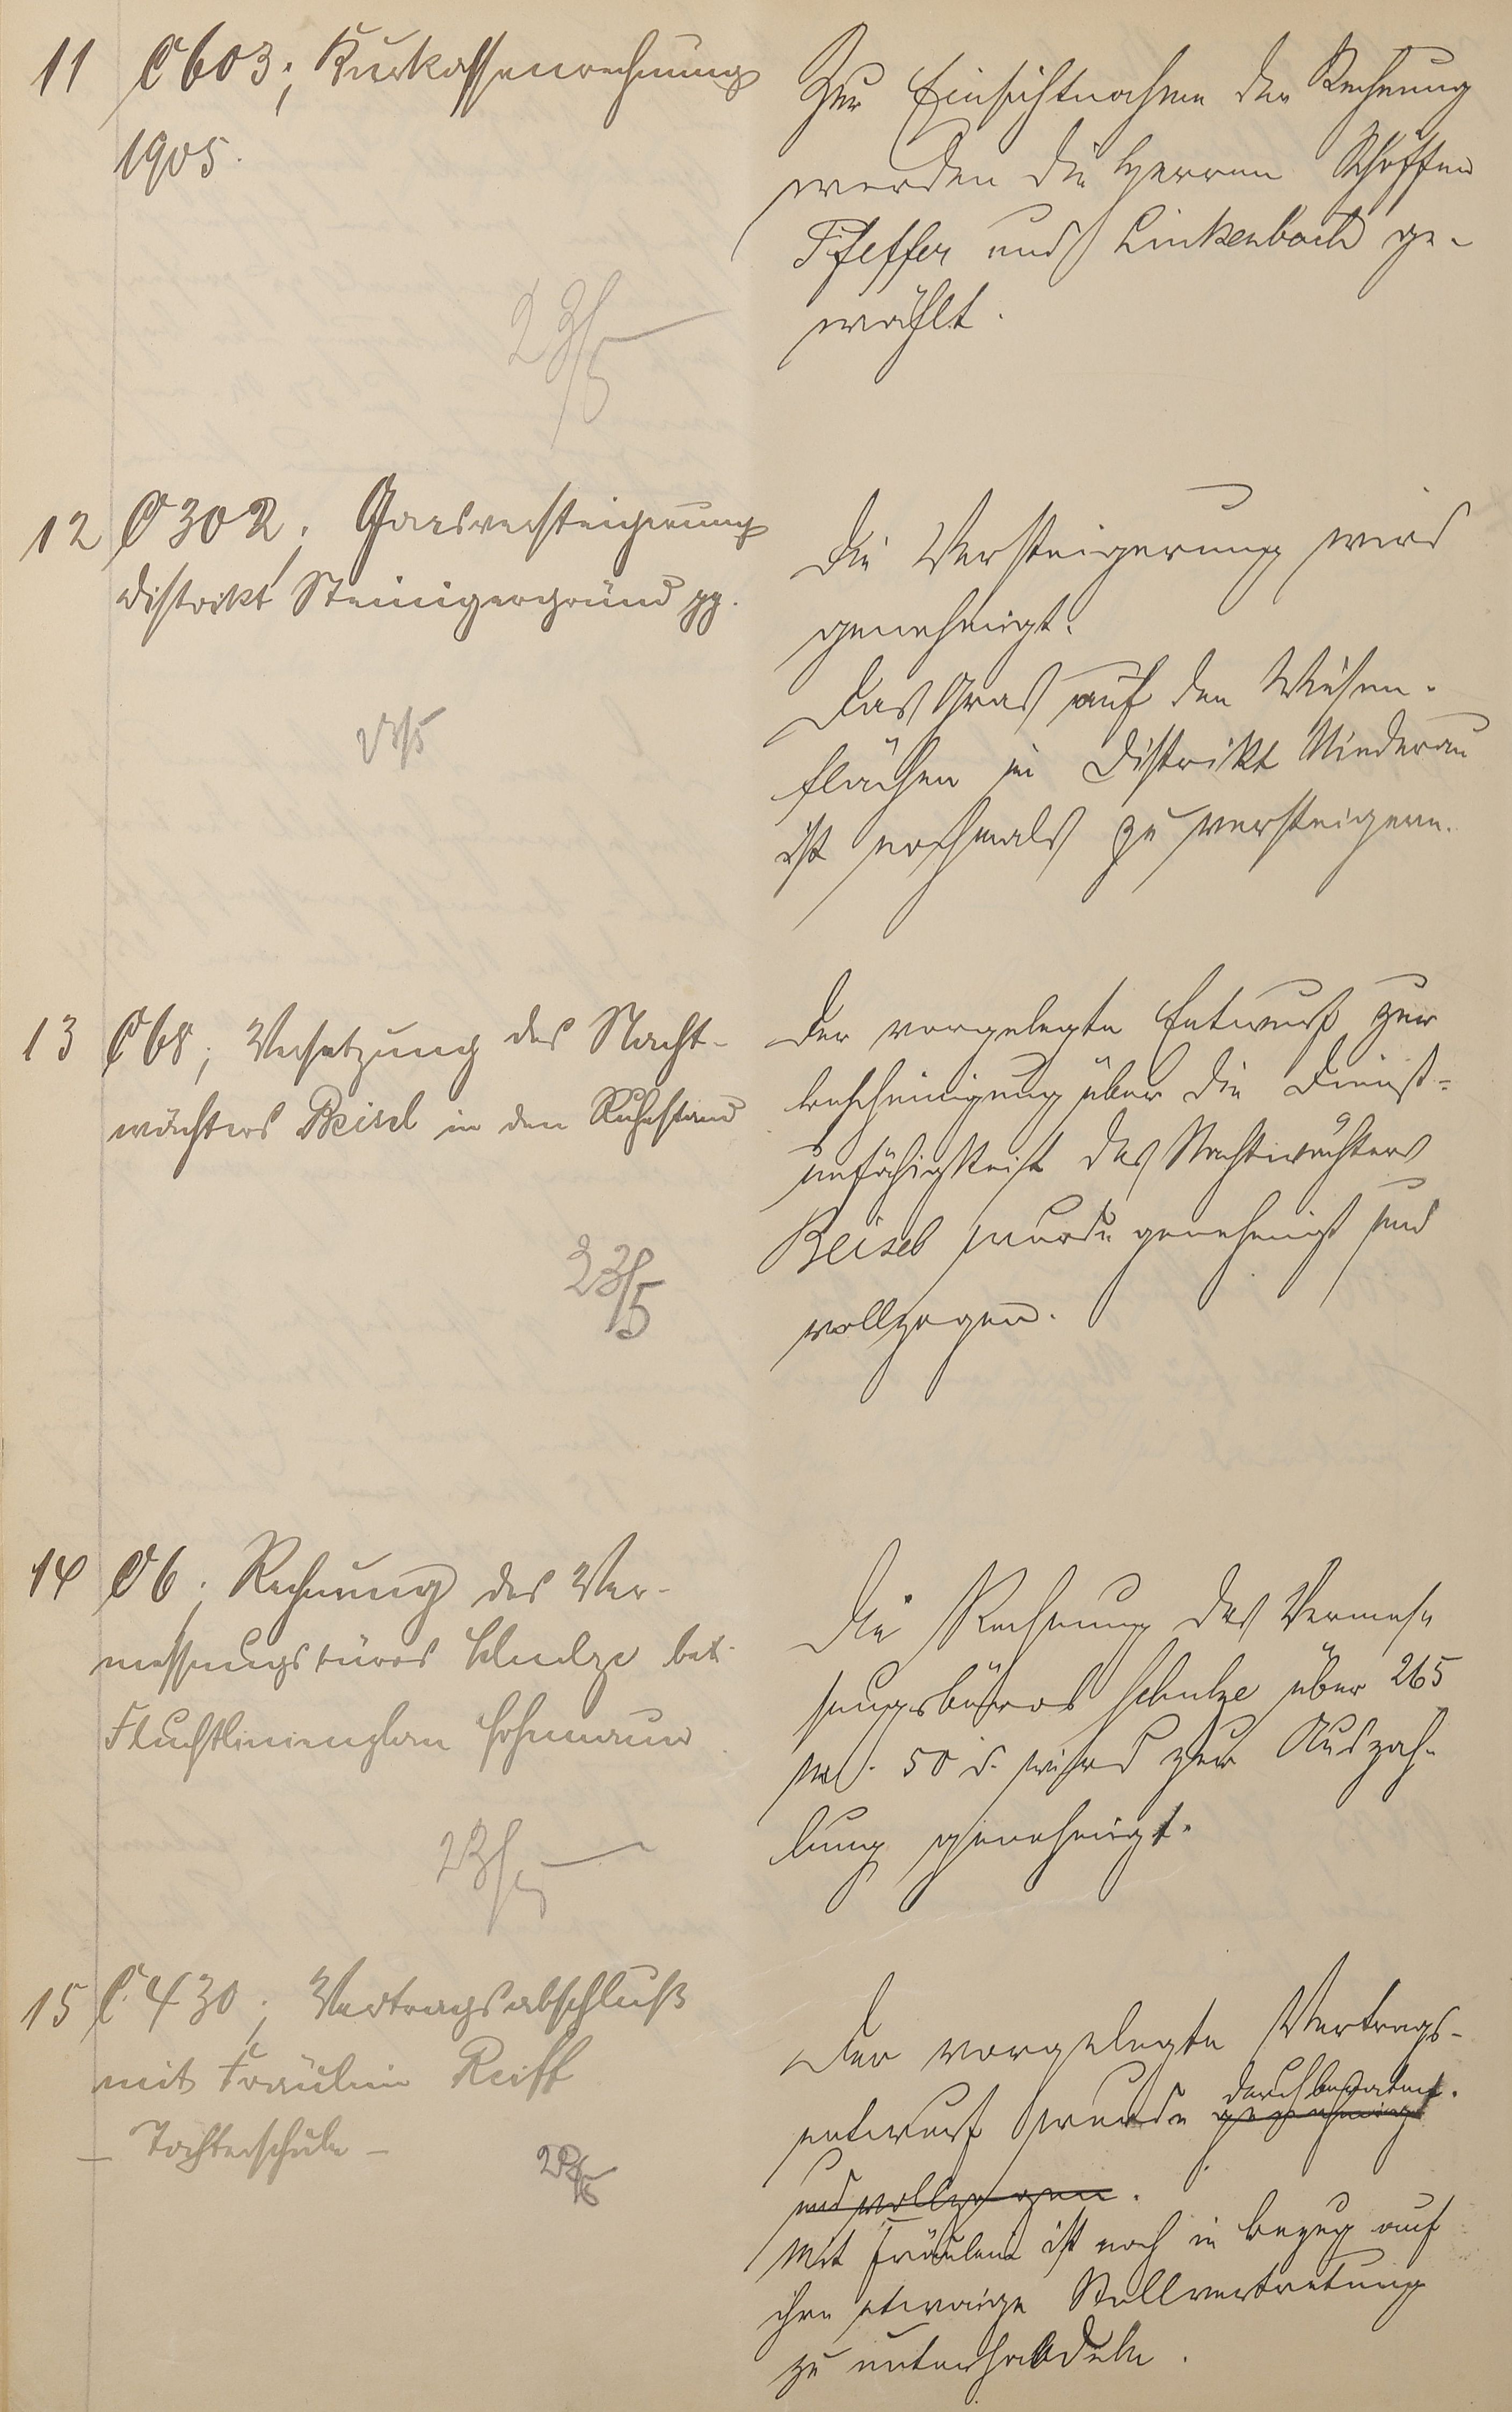 11 C 603; Kurkassenrechnung
1905.
23/5
Zur Einsichtnahme der Rechnung
werden die Herren Schöffen
Pfeffer und Linkenbach ge-
wählt.
12 C 302; Grasversteigerung
Distrikt Steinigergrund pp.
23/5
Die Versteigerung wird
genehmigt.
Das Gras auf den Wiesen-
flächen in Distrikt Niederau
ist nochmals zu versteigern.
13 C 68; Versetzung des Nacht-
wächters Beisel in den Ruhestand
23/5
Der vorgelegte Entwurf zur
bescheinigung über die Dienst-
unfähigkeit des Nachtwächters
Beisel wurde genehmigt und
vollzogen.
14 C 6; Rechnung des Ver-
messungsbüros Schulze bet.
Fluchtlinienplan Hohmann
23/5
Die Rechnung des Vermes-
sungsbüros Schulze über 265
M. 50 d. wird zur Auszah-
lung genehmigt.
15 C 430; Vertragsabschluß
mit Fräulein Reiff
- Töchterschule -
Der vorgelegte Vertrags-
entwurf wurde genehmigt durchberaten.
und vollzogen.
Mit Fräulein ist noch in bezug auf
ihre etwaige Stellvertretung
zu unterhandeln.